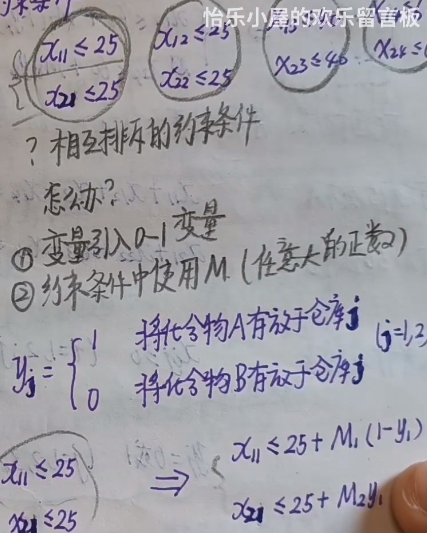 怡乐小屋的欢乐留言板
x₁₁ ≤ 25
x₁₂ ≤ 25
x₂₁ ≤ 25
x₂₂ ≤ 25
x₂₃ ≤ 40
x₂₄ ≤
? 相互排斥的约束条件
怎么办?
① 变量引入0-1变量
② 约束条件中使用M (任意大的正数)
yⱼ = { 1 将化合物A存放于仓库j (j=1,2
0 将化合物B存放于仓库j
x₁₁ ≤ 25 ⇒ { x₁₁ ≤ 25 + M₁(1-y₁)
x₂₁ ≤ 25 x₂₁ ≤ 25 + M₂y₁